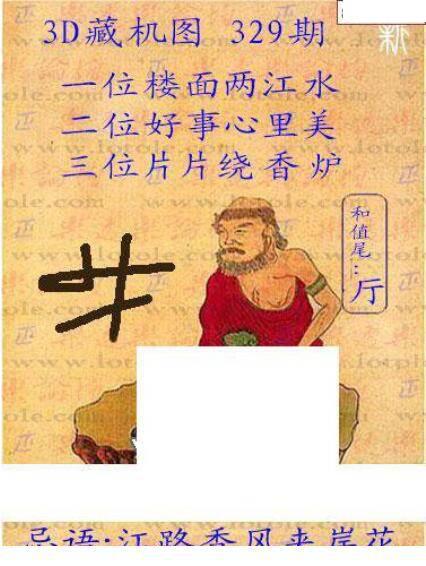 3D藏机图 329期
新
一位楼面两江水
二位好事心里美
三位片片绕香炉
和值尾：厅
忌语：江路香风夹岸花
www.lotple.com